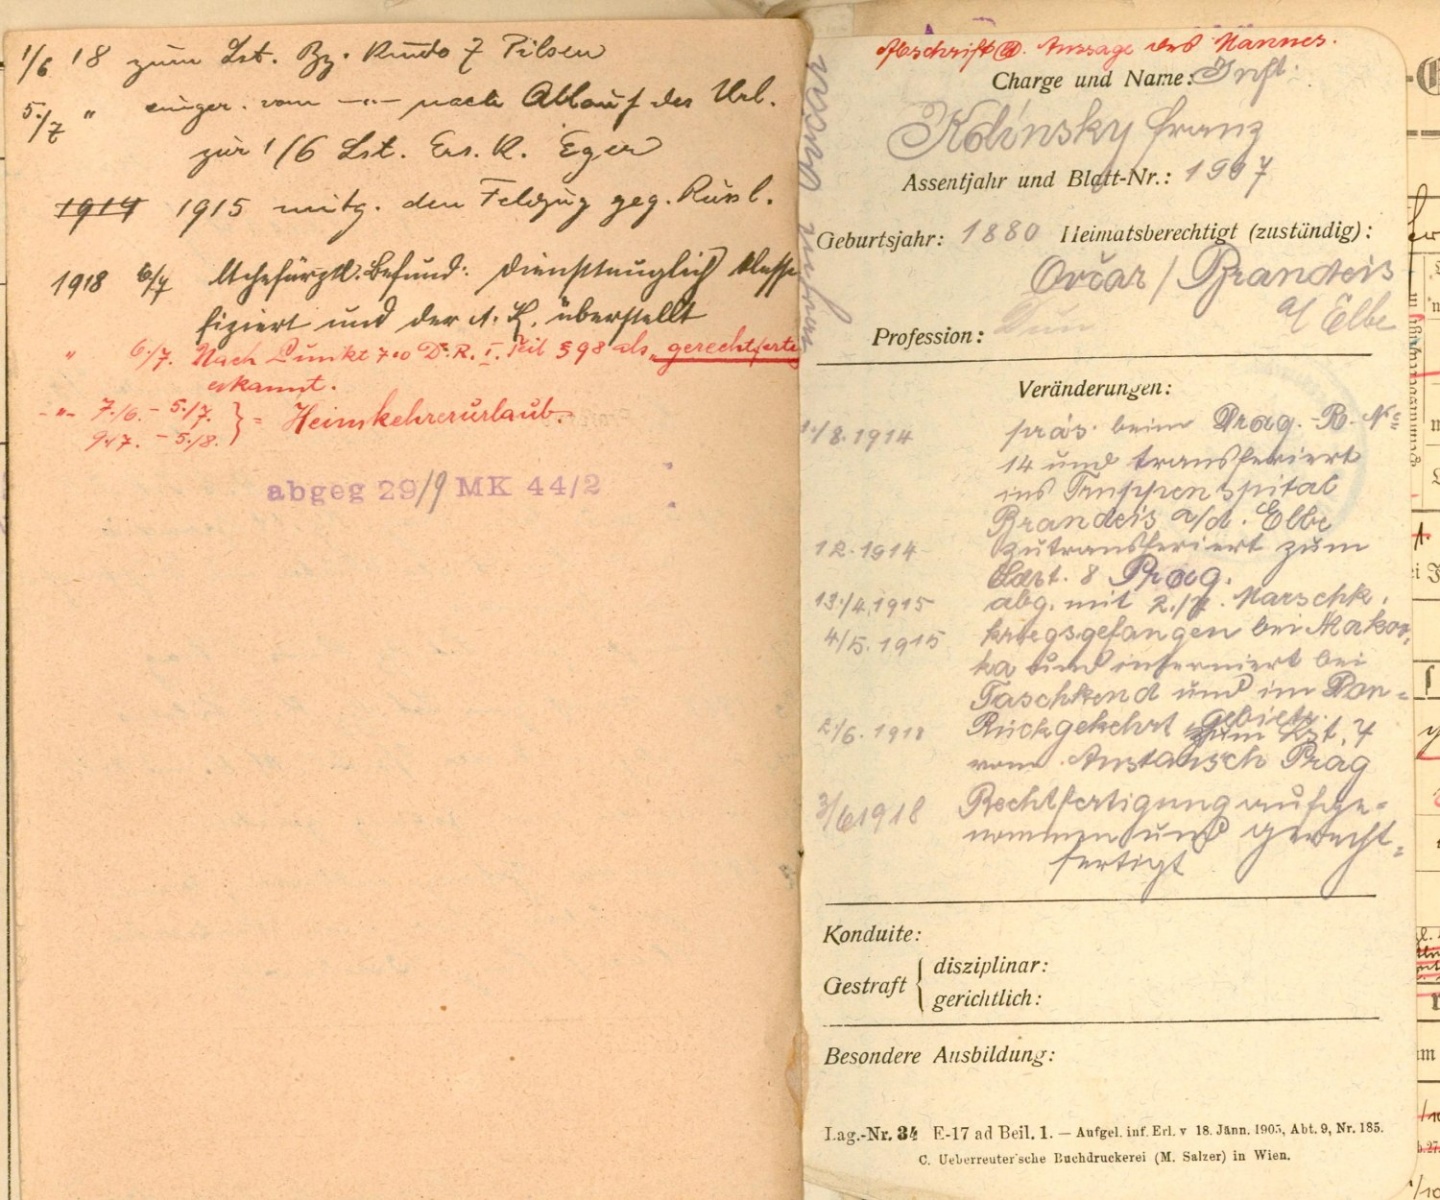 1/6 18 zum Lst. Bz. Kmdo 7 Pilsen
5./7 " einger. vom —"— nach Ablauf des Url.
zur 1/6 Lst. Ers. K. Eger
1914 1915 mitg. den Feldzug geg. Russl.
1918 6/7 Befund: diensttauglich klassi
fiziert und der A. K. überstellt
" 6./7. Nach Punkt 7 D. R. I. Teil § 98 als "gerechtferti
erkannt.
—"— 7./6. – 5./7. } = Heimkehrerurlaub.
9./7. – 5./8.
abgeg 29/9 MK 44/2
Abschrift d. Aussage des Mannes.
Charge und Name: Inft.
Kolinsky Franz
Assentjahr und Blatt-Nr.: 1907
Geburtsjahr: 1880 Heimatsberechtigt (zuständig):
Ovčar / Brandeis
a/ Elbe
Profession:
Veränderungen:
1./8. 1914 präs. beim Drag. R. No
14 und transferiert
ins Truppenspital
Brandeis a/d. Elbe
12. 1914 zutransferiert zum
Lst. 8 Prag.
13./4. 1915 abg. mit 2./7. Marschk.
4/5. 1915 kriegsgefangen bei
ka und interniert bei
Taschkend und im Don-
gebiete.
2/6. 1918 Rückgekehrt zum Lst. 7
vom Austausch Prag
3/6 1918 Rechtfertigung aufge-
nommen und gerecht-
fertigt
Konduite:
Gestraft { disziplinar:
gerichtlich:
Besondere Ausbildung:
Lag.-Nr. 34 E-17 ad Beil. 1. — Aufgel. inf. Erl. v 18. Jänn. 1905, Abt. 9, Nr. 185.
C. Ueberreuter'sche Buchdruckerei (M. Salzer) in Wien.